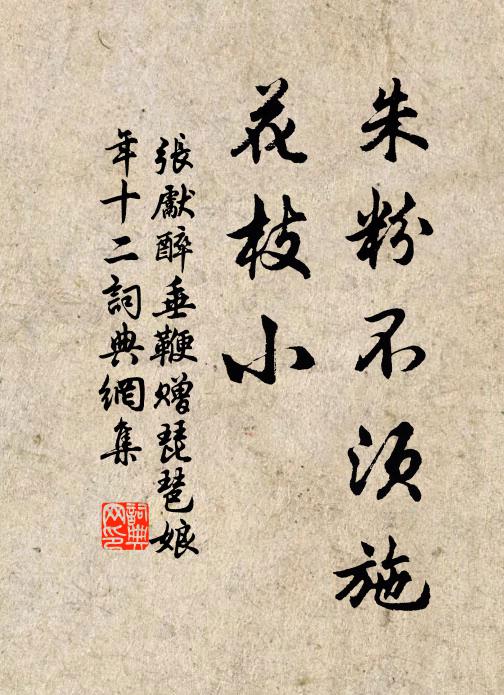 朱粉不须施
花枝小
張獻醉垂鞭赠琵琶娘
年十二詞典網集
詞典
网印